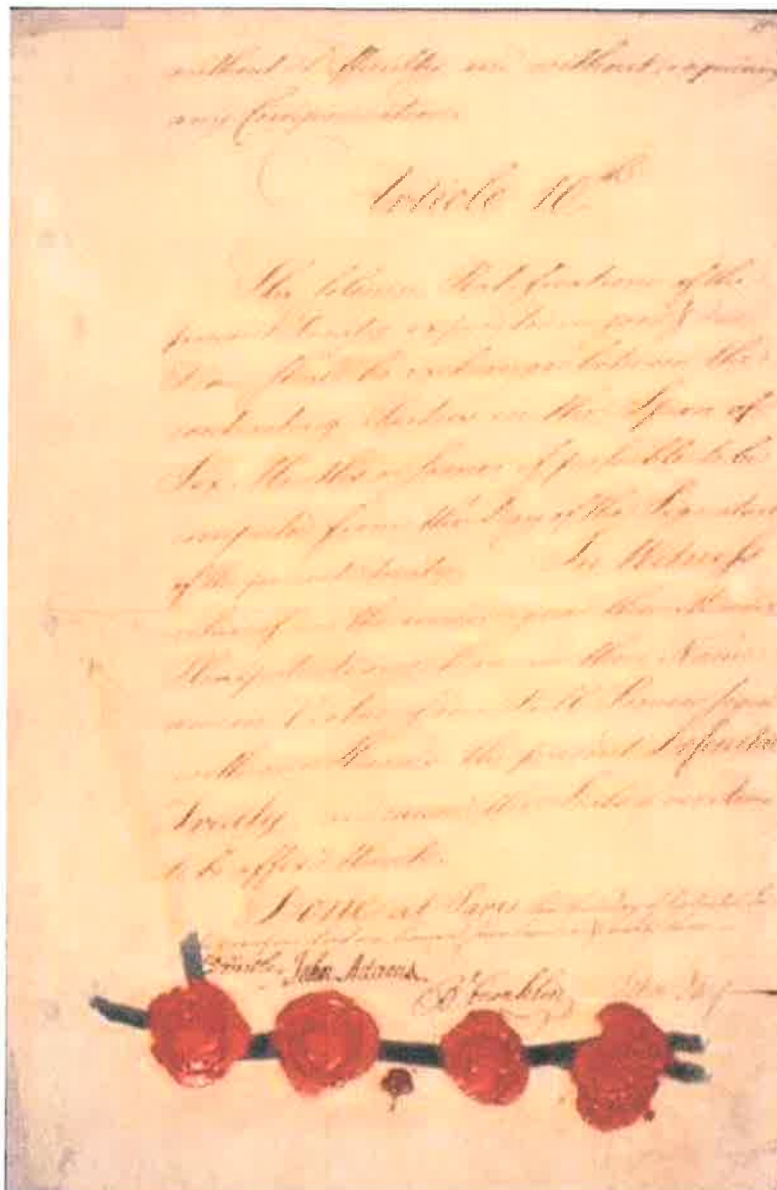 without Difficulty and without requiring
any Compensation.
Article 10th
The solemn Ratifications of the
present Treaty expedited in good & due
Form shall be exchanged between the
contracting Parties in the Space of
Six Months or sooner if possible to be
computed from the Day of the Signature
of the present Treaty. In Witness
whereof we the undersigned their Ministers
Plenipotentiary have in their Name
and in Virtue of our Full Powers signed
with our Hands the present Definitive
Treaty, and caused the Seals of our Arms
to be affix'd thereto.
Done at Paris, this third day of September, In
John Adams.
B Franklin
John Jay